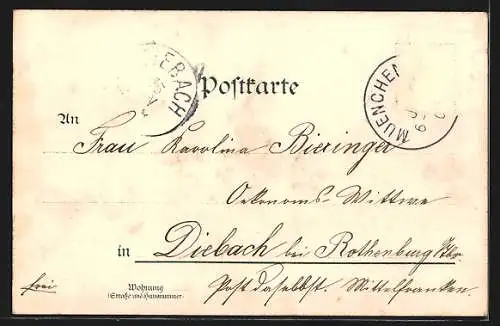 DIEBACH
Postkarte
MUENCHEN
An
Frau Karolina Bieringer
Oekonoms-Wittwe
in Diebach bei Rothenburg
frei
Wohnung
(Straße und Hausnummer)
Post daselbst. Mittelfranken.